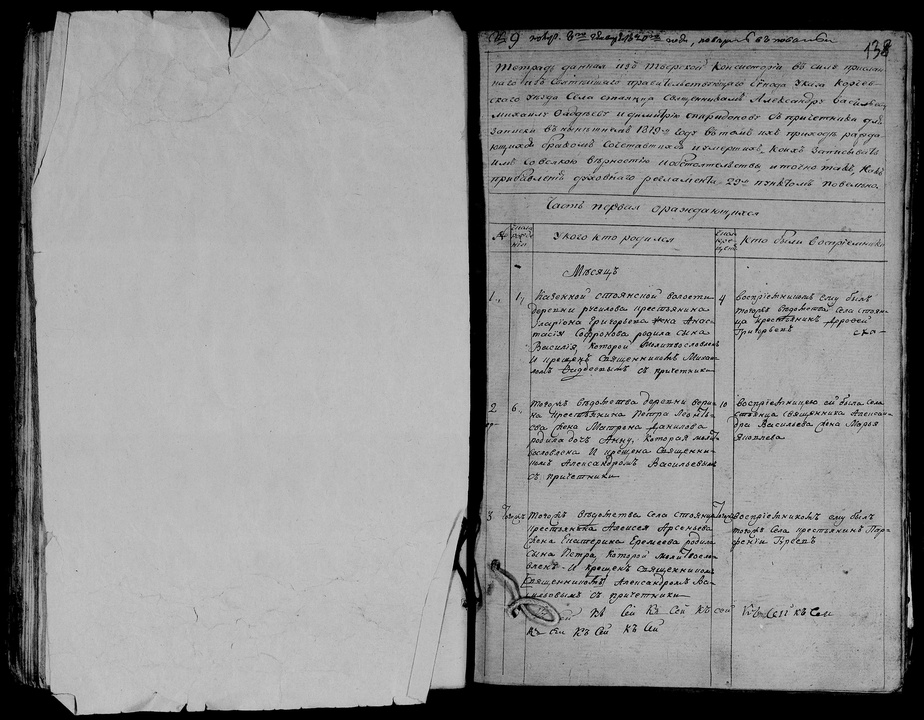 № 9
138
Тетрадь данная изъ Тверской Консисторіи въ силѣ прислан
наго изъ Святѣйшаго правительствующаго Сѵнода Указа Корчев
скаго уѣзда Села стоянца Священникамъ Александру Васильеву
Михаилу и Димитрію Спиридонову съ причетники для
записки въ нынѣшнемъ 1819м году въ томъ ихъ приходѣ ражда
ющихся бракомъ Сочетавшихся и умершихъ, коихъ записывать
имъ со всякою вѣрностію и обстоятельствы, и точно такъ, какъ
прибавленіи духовнаго регламента 29м пунктомъ повелѣно.
Часть первая о раждающихся
№
У кого кто родился
Кто были восприемники
Мѣсяцъ
1 1 Казенной стоянской волости
деревни русилова крестьянина
Иларіона Григорьева жена Анас
тасія Софронова родила сына
Василія, которой молитвословленъ
И крещенъ Священникомъ Михаи
ломъ съ причетники
4 Восприемникомъ ему былъ
тогожъ вѣдомства Села стоян
ца крестьянинъ Дорофей
Григорьевъ
2 6 тогожъ вѣдомства деревни
крестьянина Петра Леонть
ева жена Матрона Данилова
родила дочь Анну, которая молит
вословлена И крещена Священни
комъ Александромъ Васильевымъ
съ причетники
10 Восприемницею ей была Села
стоянца священника Александ
ра Васильева жена Марья
Яковлева
3 тогожъ вѣдомства Села стоянца
крестьянина Алексея Арсеньева
жена Екатерина Еремеева родила
сына Петра, которой молитвослов
ленъ И крещенъ Священникомъ
Священникомъ Александромъ Ва
сильевымъ съ причетники
Восприемникомъ ему былъ
тогожъ Села крестьянинъ Пар
фений Гурьевъ
Къ Сей Къ Сей Къ сей Къ Сей къ Сей
Къ Сей Къ Сей Къ Сей